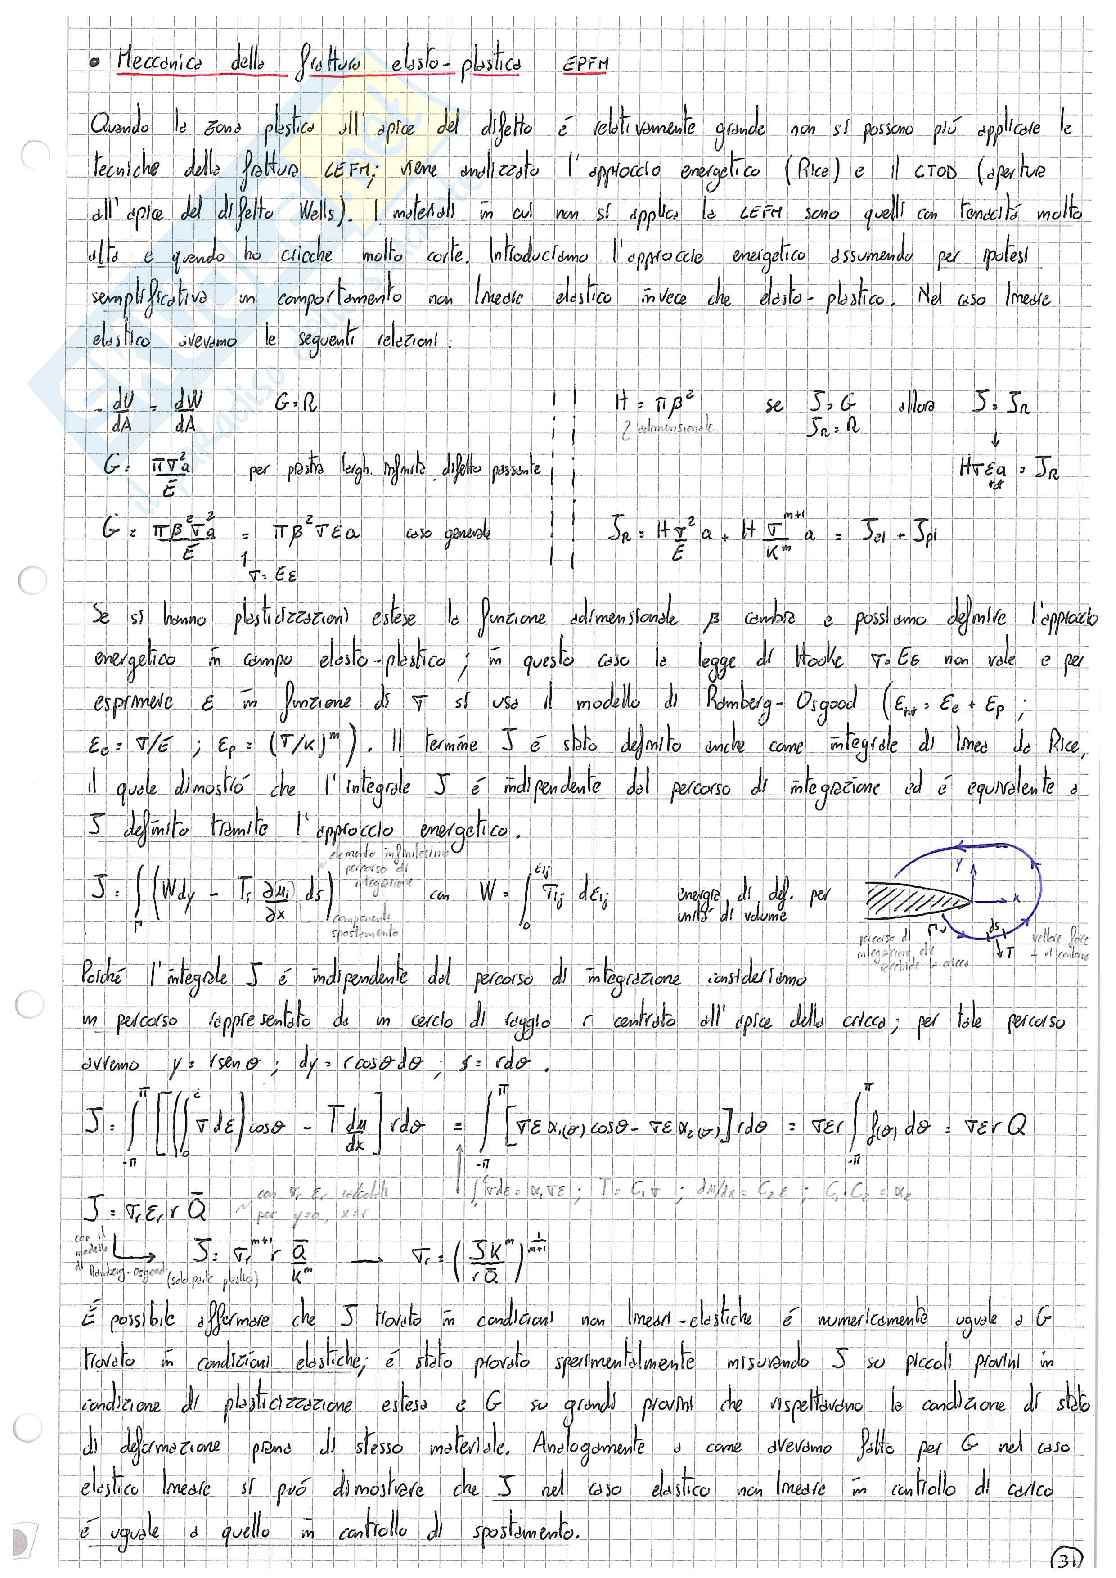 • Meccanica della frattura elasto-plastica EPFM
Quando la zona plastica all'apice del difetto é relativamente grande non si possono piú applicare le
tecniche della frattura LEFM; viene analizzato l'approccio energetico (Rice) e il CTOD (apertura
all'apice del difetto Wells). I materiali in cui non si applica la LEFM sono quelli con tenacitá molto
alta e quando ho cricche molto corte. Introduciamo l'approccio energetico assumendo per ipotesi
semplificativa un comportamento non lineare elastico invece che elasto-plastico. Nel caso lineare
elastico avevamo le seguenti relazioni:
- dU/dA = dW/dA G=R H = πβ² se J=G allora J=J_R
adimensionale J_R=R ↓
G = πσ²a/E per piastra largh. infinita, difetto passante HσE_tot a = J_R
G = πβ²σ²a/E = πβ²σεa caso generale J_R = H σ²/E a + H σ^(m+1)/K^m a = J_el + J_pl
↑ σ=Eε
Se si hanno plasticizzazioni estese la funzione adimensionale β cambia e possiamo definire l'approccio
energetico in campo elasto-plastico; in questo caso la legge di Hooke σ=Eε non vale e per
esprimere ε in funzione di σ si usa il modello di Ramberg-Osgood (ε_tot = ε_e + ε_p ;
ε_e = σ/E ; ε_p = (σ/K)^m). Il termine J é stato definito anche come integrale di linea da Rice,
il quale dimostró che l'integrale J é indipendente dal percorso di integrazione ed é equivalente a
J definito tramite l'approccio energetico.
elemento infinitesimo
percorso di
integrazione
J = ∫_Γ (Wdy - T_i ∂u_i/∂x ds) con W = ∫_0^ε_ij σ_ij dε_ij energia di def. per
unitá di volume
componente
spostamento
Y
x
ds
Γ
T
percorso di
integrazione che
vettore forze
Poiché l'integrale J é indipendente dal percorso di integrazione consideriamo
un percorso rappresentato da un cerchio di raggio r centrato all'apice della cricca; per tale percorso
avremo y = r senθ ; dy = r cosθ dθ ; s = r dθ .
J = ∫_-π^π [(∫_0^ε σdε) cosθ - T du/dx] r dθ = ∫_-π^π [σε α_1(θ) cosθ - σε α_2(θ)] r dθ = σεr ∫_-π^π f(θ) dθ = σεr Q
∫σdε = α_1σε ; T = C_1σ ; du/dx = C_2ε ; C_1·C_2 = α_2
J = σ_r ε_r r Q̄ con σ_r ε_r calcolati
per y=0, x=r
con il
modello
di Ramberg-Osgood (solo parte plastica)
J = σ_r^(m+1) r Q̄/K^m → σ_r = (J K^m / r Q̄)^(1/(m+1))
É possibile affermare che J trovato in condizioni non lineari-elastiche é numericamente uguale a G
trovato in condizioni elastiche; é stato provato sperimentalmente misurando J su piccoli provini in
condizione di plasticizzazione estesa e G su grandi provini che rispettavano la condizione di stato
di deformazione piana di stesso materiale. Analogamente a come avevamo fatto per G nel caso
elastico lineare si puó dimostrare che J nel caso elastico non lineare in controllo di carico
é uguale a quello in controllo di spostamento.
31